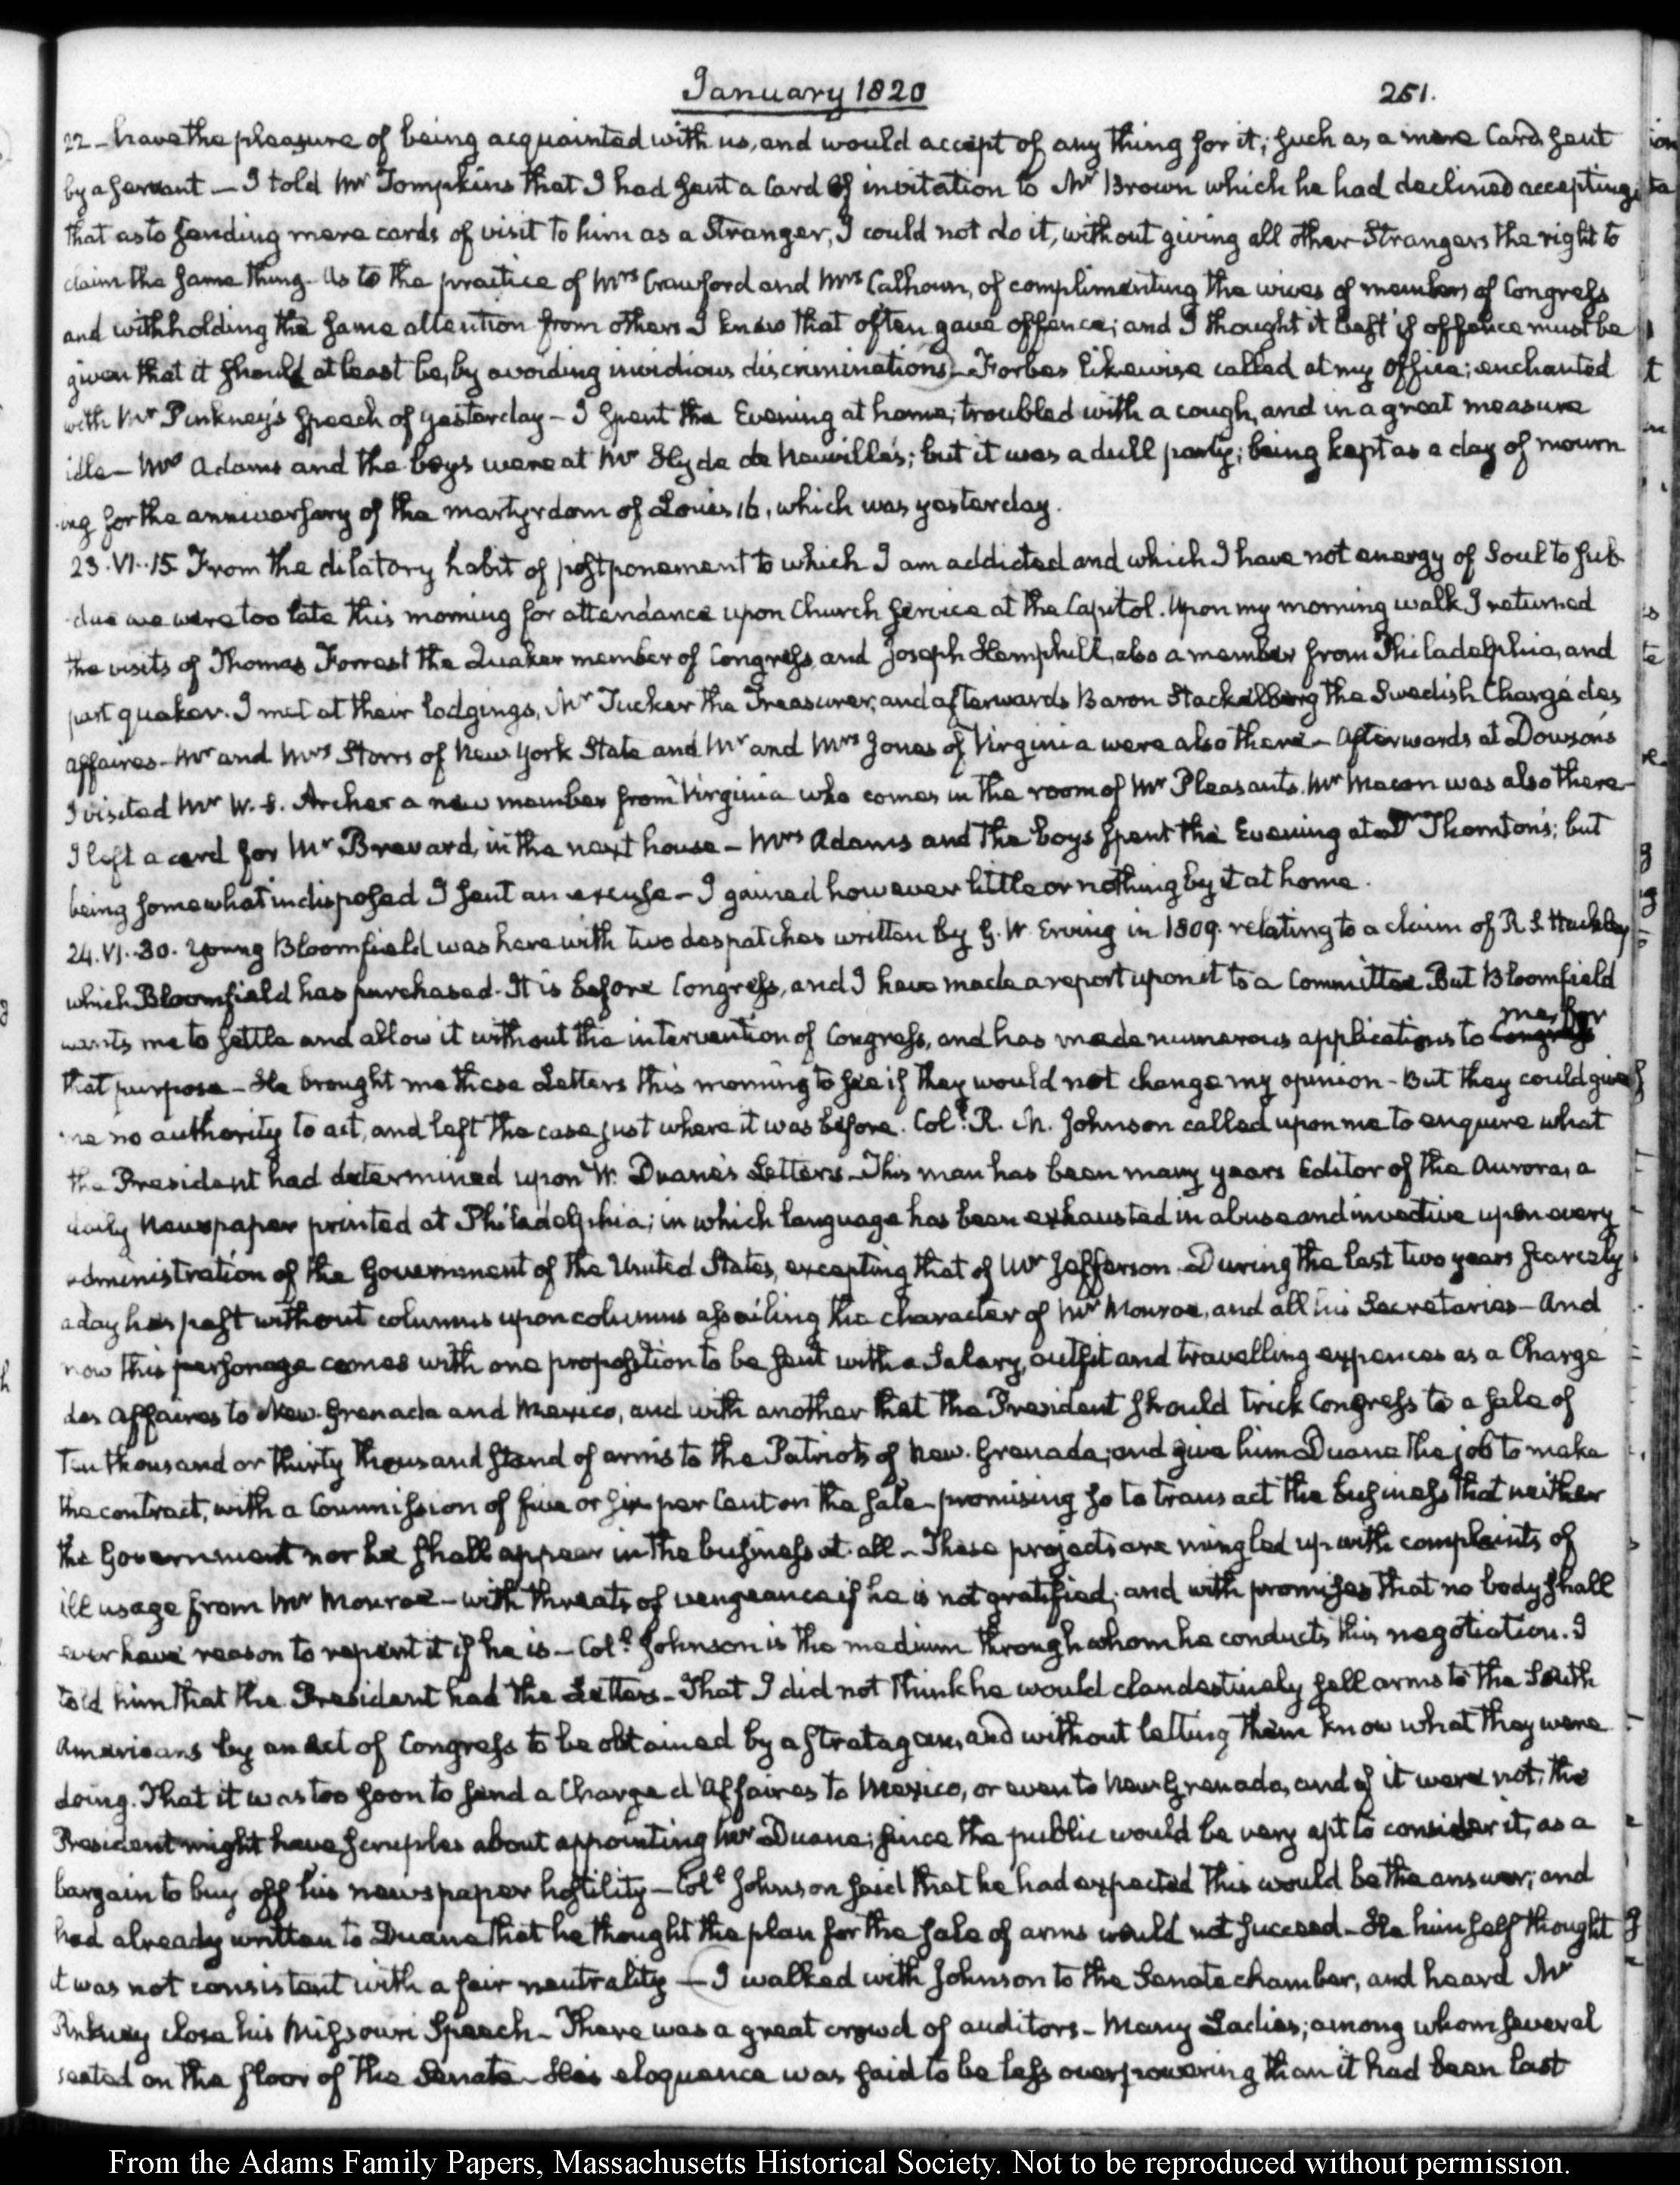 January 1820
251.
22 - have the pleasure of being acquainted with us, and would accept of any thing for it; such as a mere Card sent
by a servant — I told Mr Tompkins that I had sent a Card of invitation to Mr Brown which he had declined accepting,
that as to sending mere cards of visit to him as a Stranger, I could not do it, without giving all other Strangers the right to
claim the same thing - As to the practice of Mrs Crawford and Mrs Calhoun, of complimenting the wives of members of Congress
and withholding the same attention from others I knew that often gave offence; and I thought it best if offence must be
given that it should at least be, by avoiding invidious discriminations) - Forbes likewise called at my Office; enchanted
with Mr Pinkney's speech of yesterday - I spent the Evening at home; troubled with a cough, and in a great measure
idle — Mrs Adams and the boys were at Mr Hyde de Neuville's; but it was a dull party; being kept as a day of mourn
-ing for the anniversary of the martyrdom of Louis 16, which was yesterday.
23. VI..15. From the dilatory habit of postponement to which I am addicted and which I have not energy of Soul to sub-
-due we were too late this morning for attendance upon Church service at the Capitol. Upon my morning walk I returned
the visits of Thomas Forrest the Quaker member of Congress, and Joseph Hemphill, also a member from Philadelphia, and
part quaker. I met at their lodgings, Mr Tucker the Treasurer; and afterwards Baron Stackelberg the Swedish Chargé des
affaires - Mr and Mrs Storrs of New York State and Mr and Mrs Jones of Virginia were also there - Afterwards at Dowson's
I visited Mr W. S. Archer a new member from Virginia who comes in the room of Mr Pleasants. Mr Macon was also there -
I left a card for Mr Brevard, in the next house - Mrs Adams and the boys spent the Evening at Dr Thornton's; but
being somewhat indisposed I sent an excuse - I gained however little or nothing by it at home.
24. VI..30. Young Bloomfield was here with two despatches written by G. W. Erving in 1809. relating to a claim of R. S. Hackley
which Bloomfield has purchased - It is before Congress, and I have made a report upon it to a Committee. But Bloomfield
me, for
wants me to settle and allow it without the intervention of Congress, and has made numerous applications to Congress
that purpose - He brought me these Letters this morning to see if they would not change my opinion - But they could give
me no authority to act, and left the case just where it was before. Coll. R. M. Johnson called upon me to enquire what
the President had determined upon W. Duane's Letters - This man has been many years Editor of the Aurora, a
daily Newspaper printed at Philadelphia; in which language has been exhausted in abuse and invective upon every
administration of the Government of the United States, excepting that of Mr Jefferson. During the last two years scarcely
a day has past without columns upon columns assailing the character of Mr Monroe, and all his Secretaries - And
now this personage comes with one proposition to be sent with a Salary, outfit and travelling expences as a Chargé
des Affaires to New-Grenada and Mexico, and with another that the President should trick Congress to a sale of
Ten thousand or thirty thousand stand of arms to the Patriots of New-Grenada; and give him Duane the job to make
the contract, with a Commission of five or six per Cent on the sale - promising so to transact the business that neither
the Government nor he shall appear in the business at all - These projects are mingled up with complaints of
ill usage from Mr Monroe - with threats of vengeance if he is not gratified; and with promises that no body shall
ever have reason to repent it if he is - Coll. Johnson is the medium through whom he conducts this negotiation. I
told him that the President had the Letters - That I did not think he would clandestinely sell arms to the South
Americans by an Act of Congress to be obtained by a stratagem, and without letting them know what they were
doing. That it was too soon to send a Charge d'Affaires to Mexico, or even to New Grenada, and if it were not, the
President might have scruples about appointing Mr Duane; since the public would be very apt to consider it, as a
bargain to buy off his newspaper hostility - Coll. Johnson said that he had expected this would be the answer; and
had already written to Duane that he thought the plan for the sale of arms would not succeed - He himself thought
it was not consistent with a fair neutrality — (I walked with Johnson to the Senate chamber, and heard Mr
Pinkney close his Missouri Speech - There was a great crowd of auditors - Many Ladies; among whom several
seated on the floor of the Senate - His eloquence was said to be less overpowering than it had been last
From the Adams Family Papers, Massachusetts Historical Society. Not to be reproduced without permission.